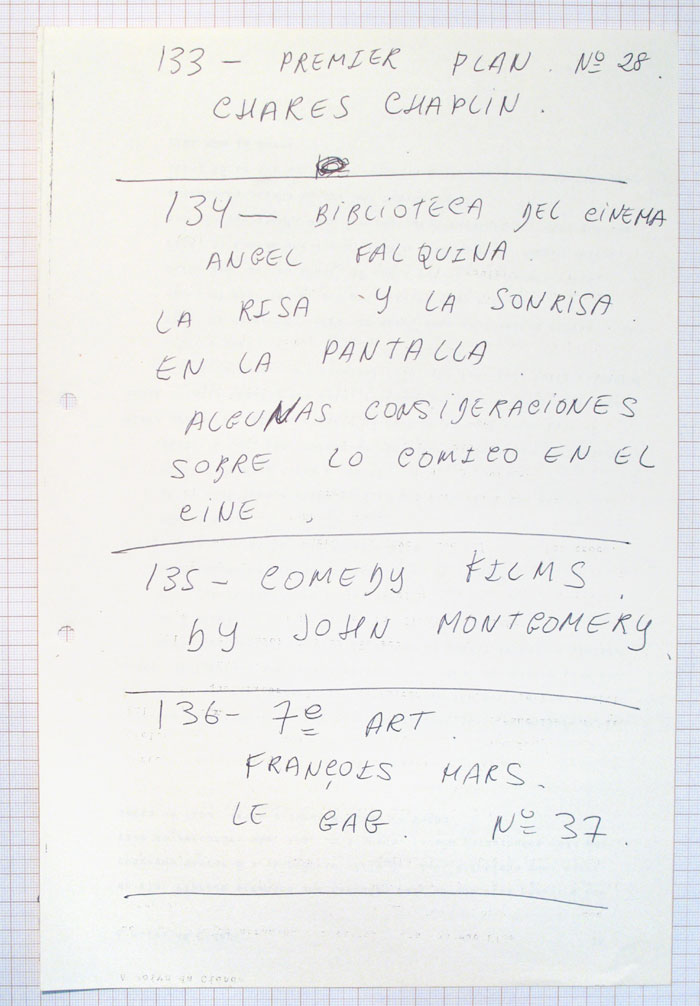 133 - PREMIER PLAN. Nº 28.
CHARES CHAPLIN.
134 - BIBLIOTECA DEL CINEMA
ANGEL FALQUINA.
LA RISA Y LA SONRISA.
EN LA PANTALLA.
ALGUNAS CONSIDERACIONES
SOBRE LO COMICO EN EL
CINE.
135 - COMEDY FILMS.
by JOHN MONTGOMERY
136 - 7e ART.
FRANÇOIS MARS.
LE GAG. Nº 37.